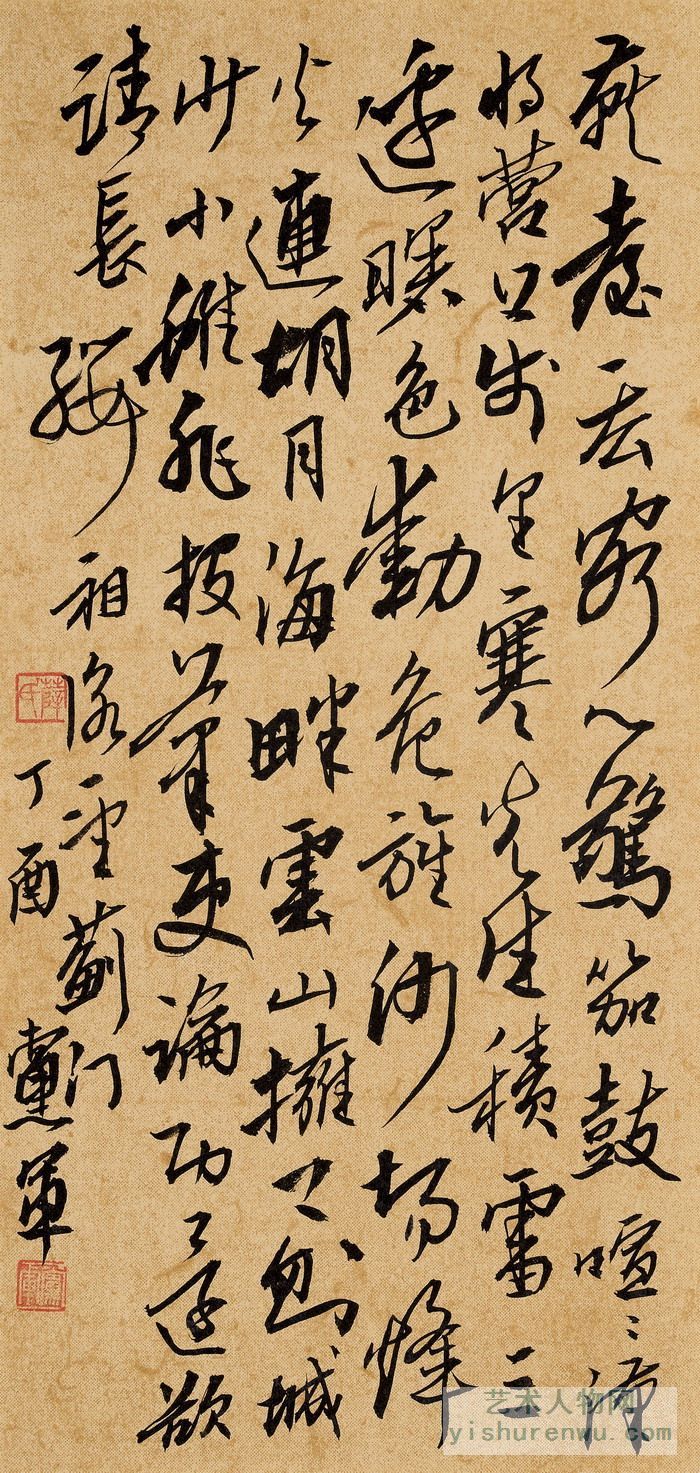 燕臺一去客心驚笳鼓喧喧漢
将營万里寒光生積雪三
邊曙色動危旌沙場烽
火連胡月海畔雲山擁薊城
少小雖非投筆吏論功還欲
請長纓 祖詠望薊门
丁酉 憲軍
薛氏
艺术人物网
yishurenwu.com